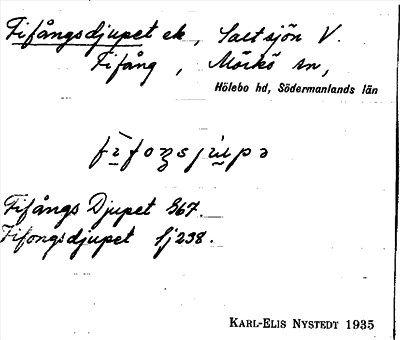 Fifångsdjupet ek, Saltsjön V.
Fifång, Mörkö sn,
Hölebo hd, Södermanlands län
Fifångs Djupet S67.
Fifongsdjupet Sj238.
KARL-ELIS NYSTEDT 1935